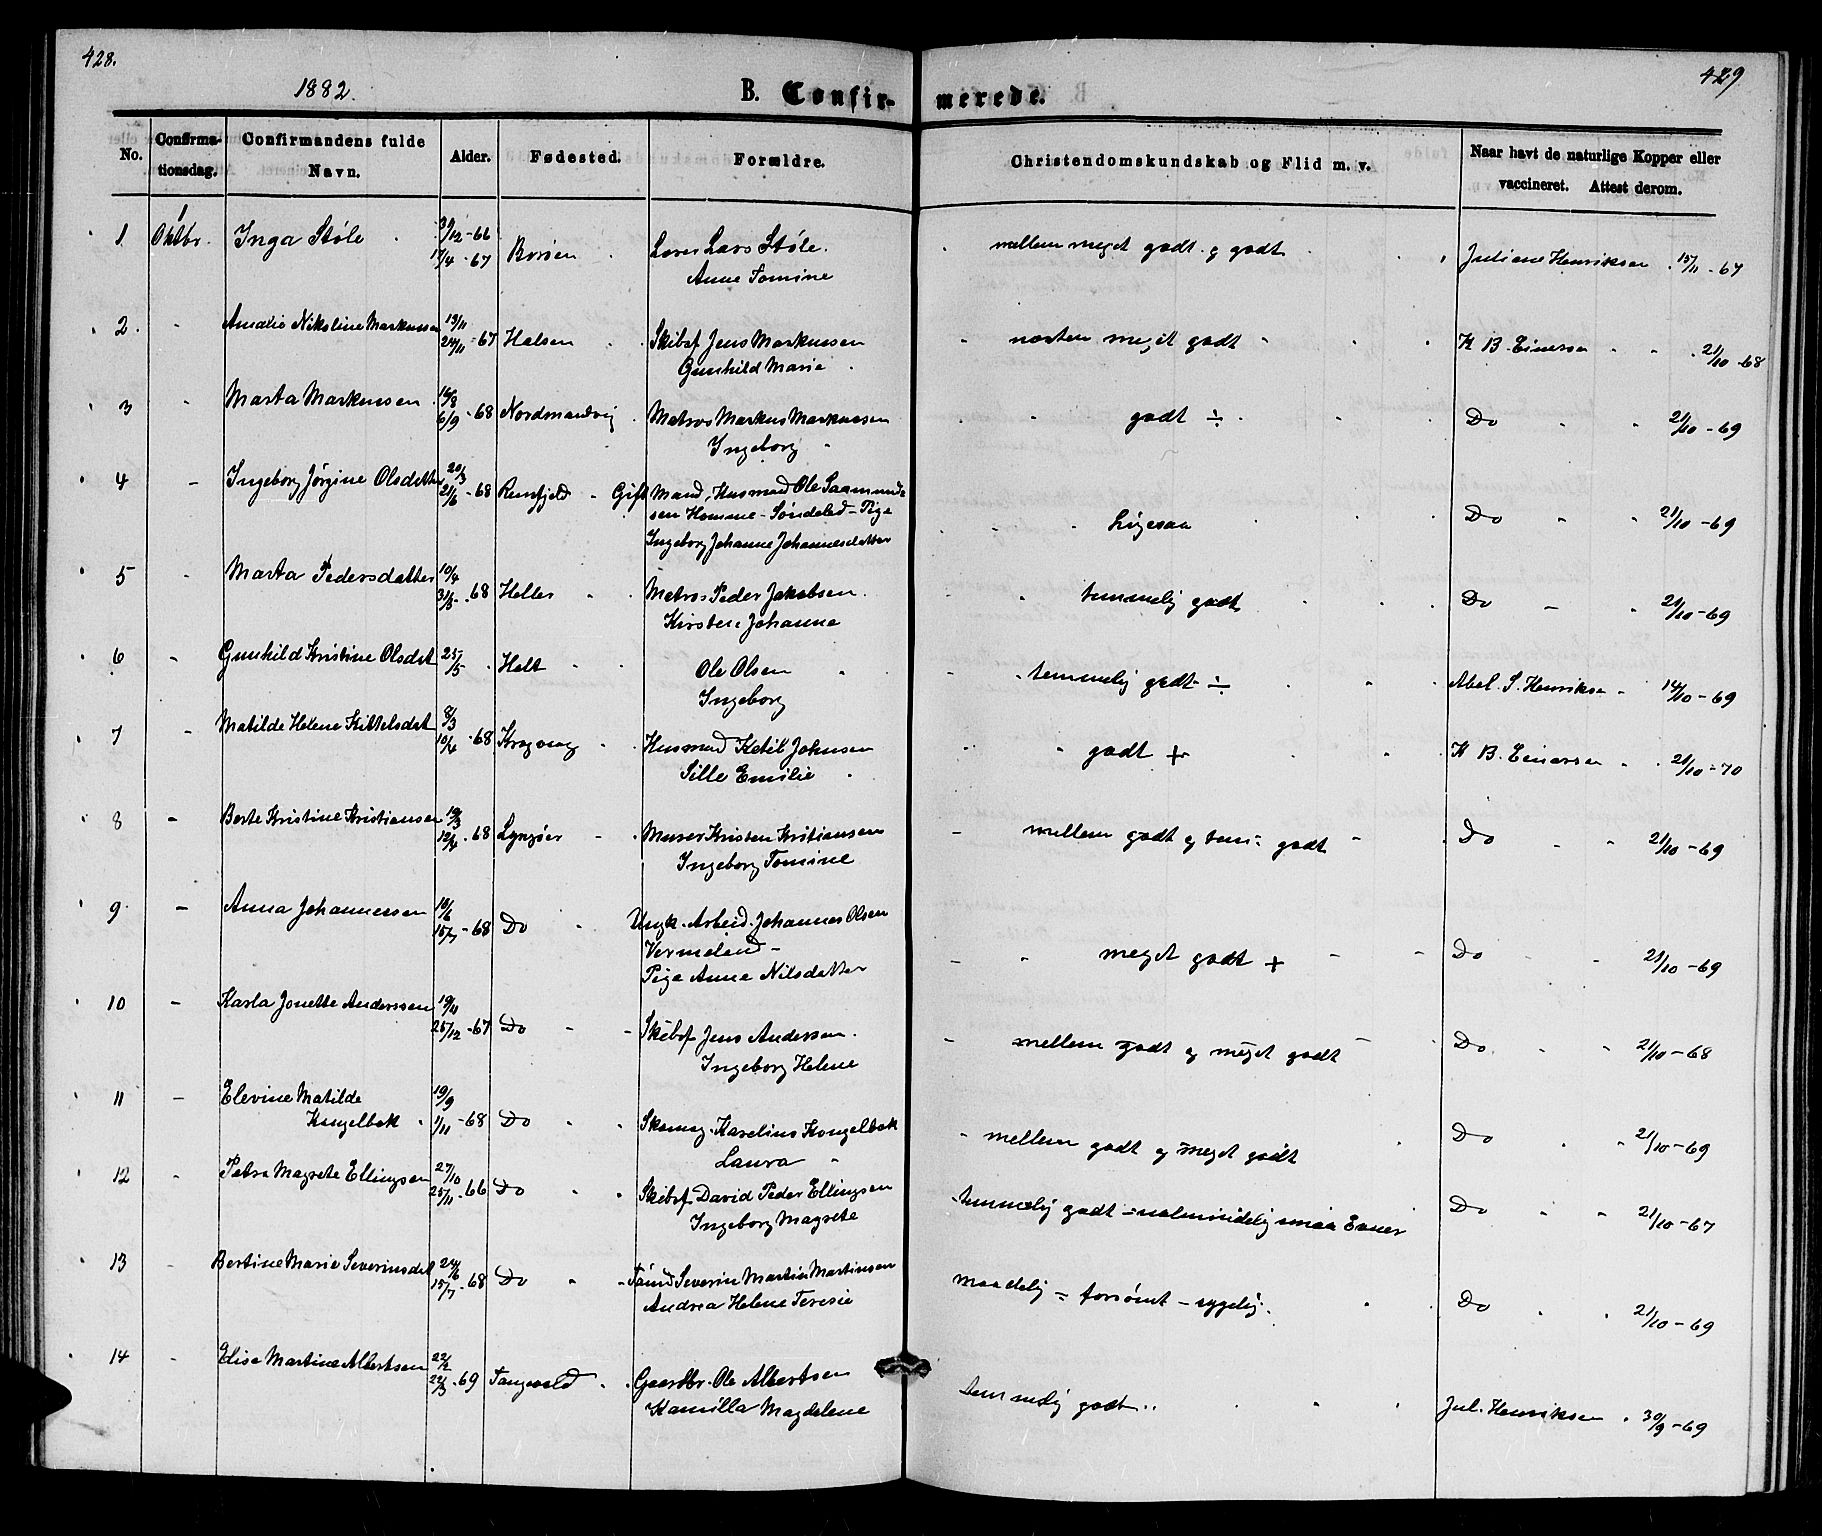 428.
429
1882.
B. Confir-
merede.
No.
Confirma-
tionsdag.
Confirmandens fulde
Navn.
Alder.
Fødested.
Forældre.
Christendomskundskab og Flid m. v.
Naar havt de naturlige Kopper eller
vaccineret. Attest derom.
1 1 Oktbr. Inga Støle 31/12-66 Borøen Lars Støle. mellem meget godt og godt Juliane Henriksen 15/11-67
17/4-67 Anne Tomine
2. - Amalie Nikoline Markussen 13/11 Halsen Skibsf Jens Markussen næsten meget godt K B. Einersen 21/10-68
24/11-67 Gunhild Marie
3 - Marta Markussen 16/8 Nordmandvig Matros Markus Markussen godt ÷ Do 21/10-69
6/9-68 Ingeborg
4 - Ingeborg Jørgine Olsdatter 20/3 Gift Mand, Husmand Ole Saamund-
21/6-68 sen Homme - Søndeled - Pige Ligesaa Do 21/10-69
Ingeborg Johanne Johannesdatter
5 - Marta Pedersdatter 10/4 Helle Matros Peder Jakobsen temmelig godt Do 21/10-69
31/5-68 Kirstene Johanne
6 - Gunhild Kristine Olsdat 25/5 Holt Ole Olsen temmelig godt ÷ Abel. S. Henriksen 14/10-69
Ingeborg
7 - Matilde Helene Kittelsdat 8/3 Kragvaag Husmand Ketil Johnsen godt + K B. Einersen 21/10-70
10/4-68 Sille Emilie
8 - Berte Kristine Kristiansen 19/3 Lyngøer Murer Kristen Kristiansen mellem godt og tem: godt Do 21/10-69
12/4-68 Ingeborg Tomine
9 - Anna Johannessen 10/6 Do Ungk. Arbeid. Johannes Olsen
15/7-68 Vermeland - meget godt + Do 21/10-69
Pige Anna Nilsdatter
10 - Karla Jonette Anderssen 19/11 Do Skibsf Jens Andersen mellem godt og meget godt Do 21/10-68
25/12-67 Ingeborg Helene
11 - Elevine Matilde 19/9
Kongelbek 1/11-68 Do Skomag. Karelius Kongelbek mellem godt og meget godt Do 21/10-69
Laura
12 - Petra Magrete Ellingsen 27/10 Do Skibsf David Peder Ellingsen temmelig godt - ualmindelig smaa Evner Do 21/10-67
25/11-66 Ingeborg Magrete
13 - Bertine Marie Severinsdat 24/6 Do Tømd Severin Martin Martinsen maadelig - forsømt - sygelig. Do 21/10-69
15/7-68 Andrea Helene Teresie
14 - Elise Martine Albertsen 22/2 Tangvald Gaardbr. Ole Albertsen temmelig godt Jul. Henriksen 30/9-69
22/3-69 Kamilla Magdelene